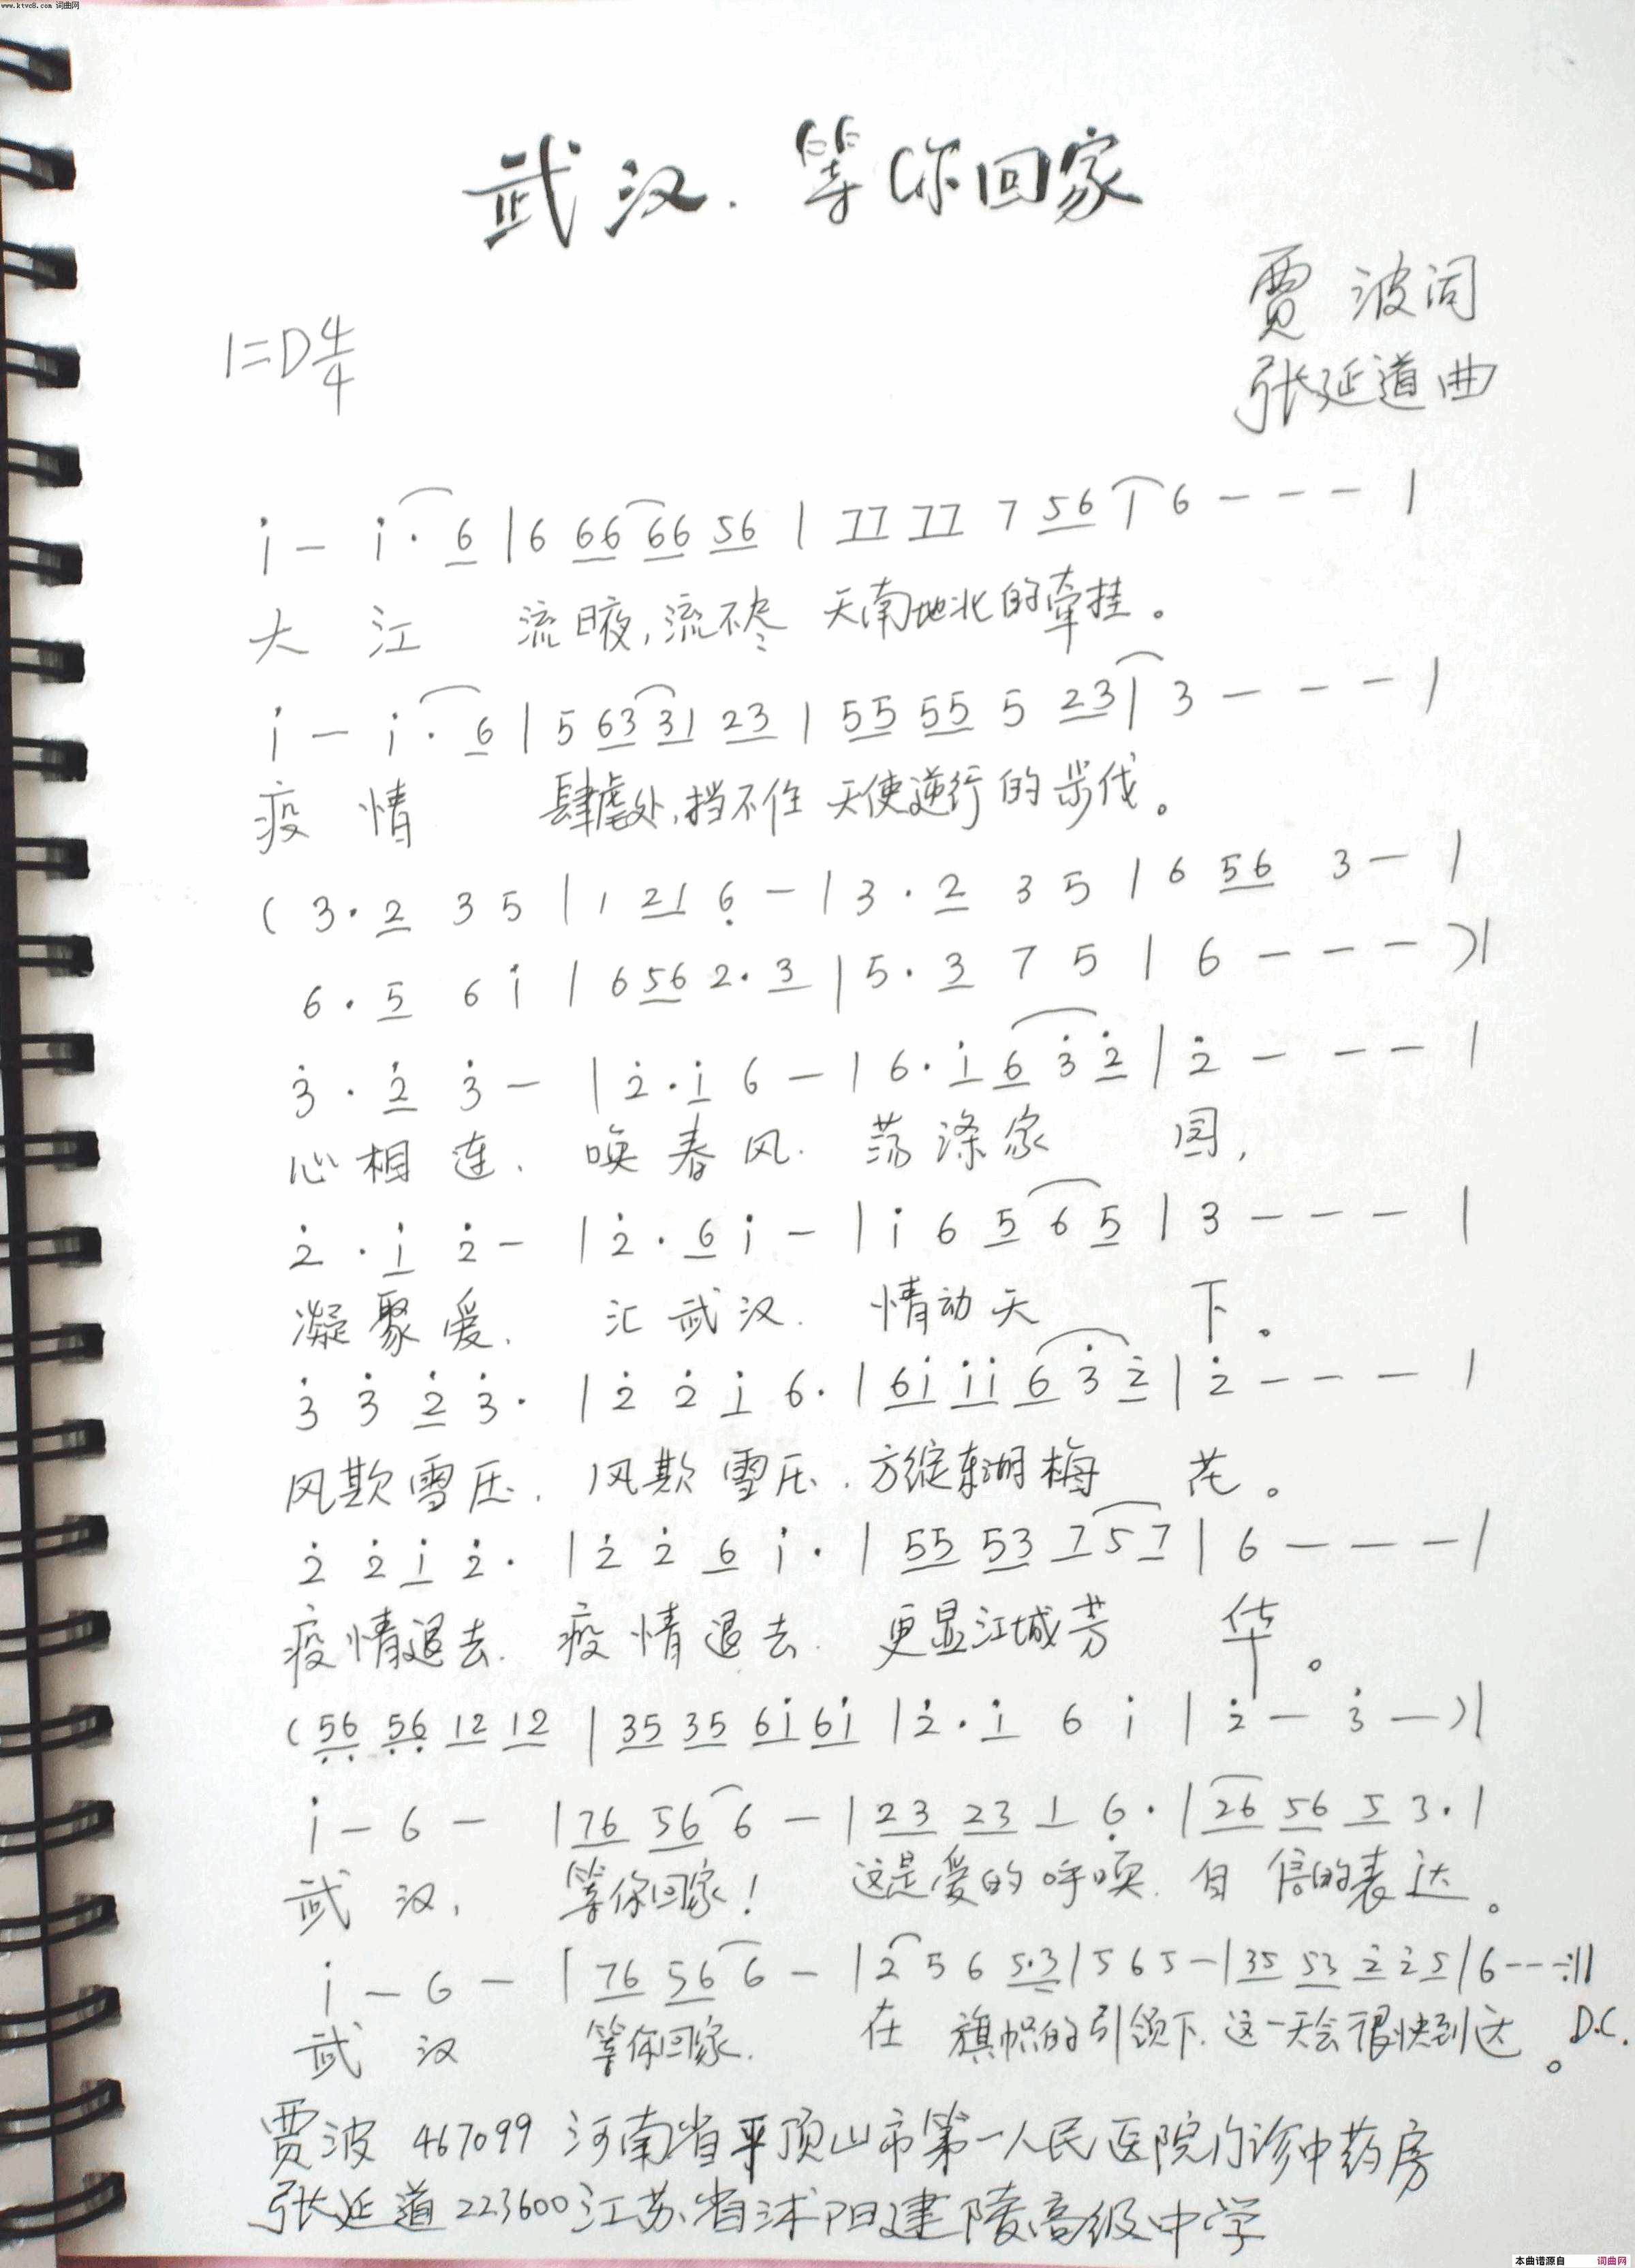 www.ktvc8.com 词曲网
武汉.等你回家
贾 波词
1=D 4/4
张延道曲
i - i· 6 | 6 66 66 56 | 77 77 7 56 | 6 - - - |
大 江 流日夜,流不尽 天南地北的牵挂。
i - i· 6 | 5 63 31 23 | 55 55 5 23 | 3 - - - |
疫 情 肆虐处,挡不住 天使逆行的步伐。
( 3· 2 3 5 | 1 21 6̣ - | 3· 2 3 5 | 6 56 3 - |
6· 5 6 i | 6 56 2· 3 | 5· 3 7 5 | 6 - - - )|
3̇· 2̇ 3̇ - | 2̇· i 6 - | 6· i 6 3̇ 2̇ | 2̇ - - - |
心相连、唤春风.荡涤家 园,
2̇· i 2̇ - | 2̇· 6 i - | i 6 5 6 5 | 3 - - - |
凝聚爱.汇武汉.情动天 下。
3̇ 3̇ 2̇ 3̇· | 2̇ 2̇ i 6· | 6i ii 6 3̇ 2̇ | 2̇ - - - |
风欺雪压.风欺雪压.方绽东湖梅 花。
2̇ 2̇ i 2̇· | 2̇ 2̇ 6 i· | 55 53 7 5 7 | 6 - - - |
疫情退去.疫情退去.更显江城芳 华。
( 5̣6̣ 5̣6̣ 12 12 | 35 35 6i 6i | 2̇· i 6 i | 2̇ - 3̇ - )|
i - 6 - | 76 56 6 - | 23 23 1 6̣· | 26 56 5 3· |
武 汉, 等你回家! 这是爱的呼唤.自 信的表达。
i - 6 - | 76 56 6 - | 2 5 6 5·3 | 5 6 5 - | 35 53 2 2 5 | 6 - - - :||
武 汉 等你回家. 在 旗帜的引领下.这一天会很快到达。D.C.
贾波 467099 河南省平顶山市第一人民医院门诊中药房
张延道 223600 江苏省沭阳建陵高级中学
本曲谱源自 词曲网